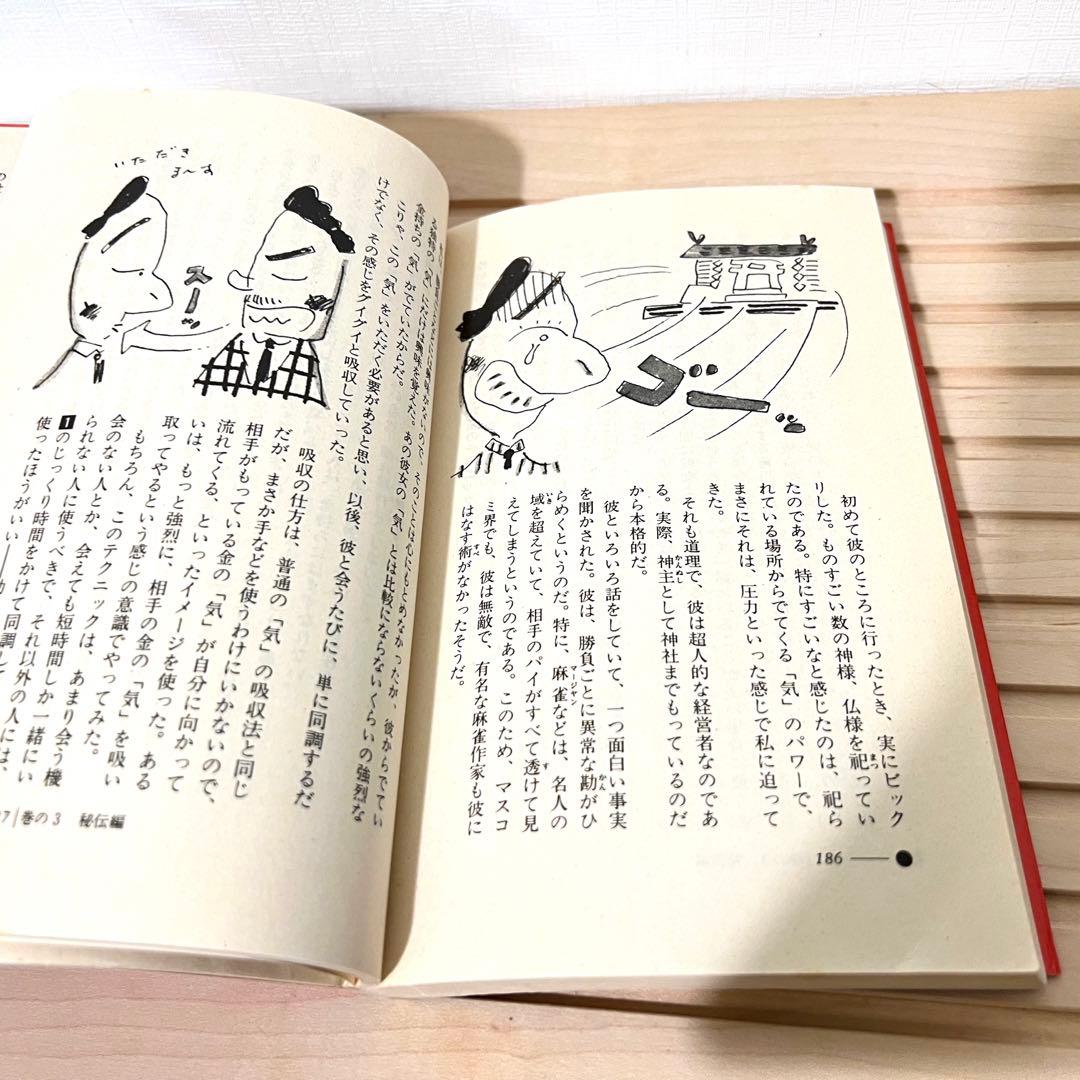 ゴーッ
初めて彼のところに行ったとき、実にビック
リした。ものすごい数の神様、仏様を祀ってい
たのである。特にすごいなと感じたのは、祀ら
れている場所からでてくる「気」のパワーで、
まさにそれは、圧力といった感じで私に迫って
きた。
それも道理で、彼は超人的な経営者なのであ
る。実際、神主として神社までもっているのだ
から本格的だ。
彼といろいろ話をしていて、一つ面白い事実
を聞かされた。彼は、勝負ごとに異常な勘がひ
らめくというのだ。特に、麻雀などは、名人の
域を超えていて、相手のパイがすべて透けて見
えてしまうというのである。このため、マスコ
ミ界でも、彼は無敵で、有名な麻雀作家も彼に
はなす術がなかったそうだ。
186
にだけは興味を覚えた。あの彼女の「気」とは比較にならないくらいの強烈な
金持ちの「気」がでていたからだ。
こりゃ、この「気」をいただく必要があると思い、以後、彼と会うたびに、単に同調するだ
けでなく、その感じをグイグイと吸収していった。
いただき
ま〜す
スーッ
吸収の仕方は、普通の「気」の吸収法と同じ
だが、まさか手などを使うわけにいかないので、
相手がもっている金の「気」が自分に向かって
流れてくる、といったイメージを使った。ある
いは、もっと強烈に、相手の金の「気」を吸い
取ってやるという感じの意識でやってみた。
もちろん、このテクニックは、あまり会う機
会のない人とか、会えても短時間しか一緒にい
られない人に使うべきで、それ以外の人には、
1のじっくり時間をかけて同調して
使ったほうがいい──
7 巻の3 秘伝編